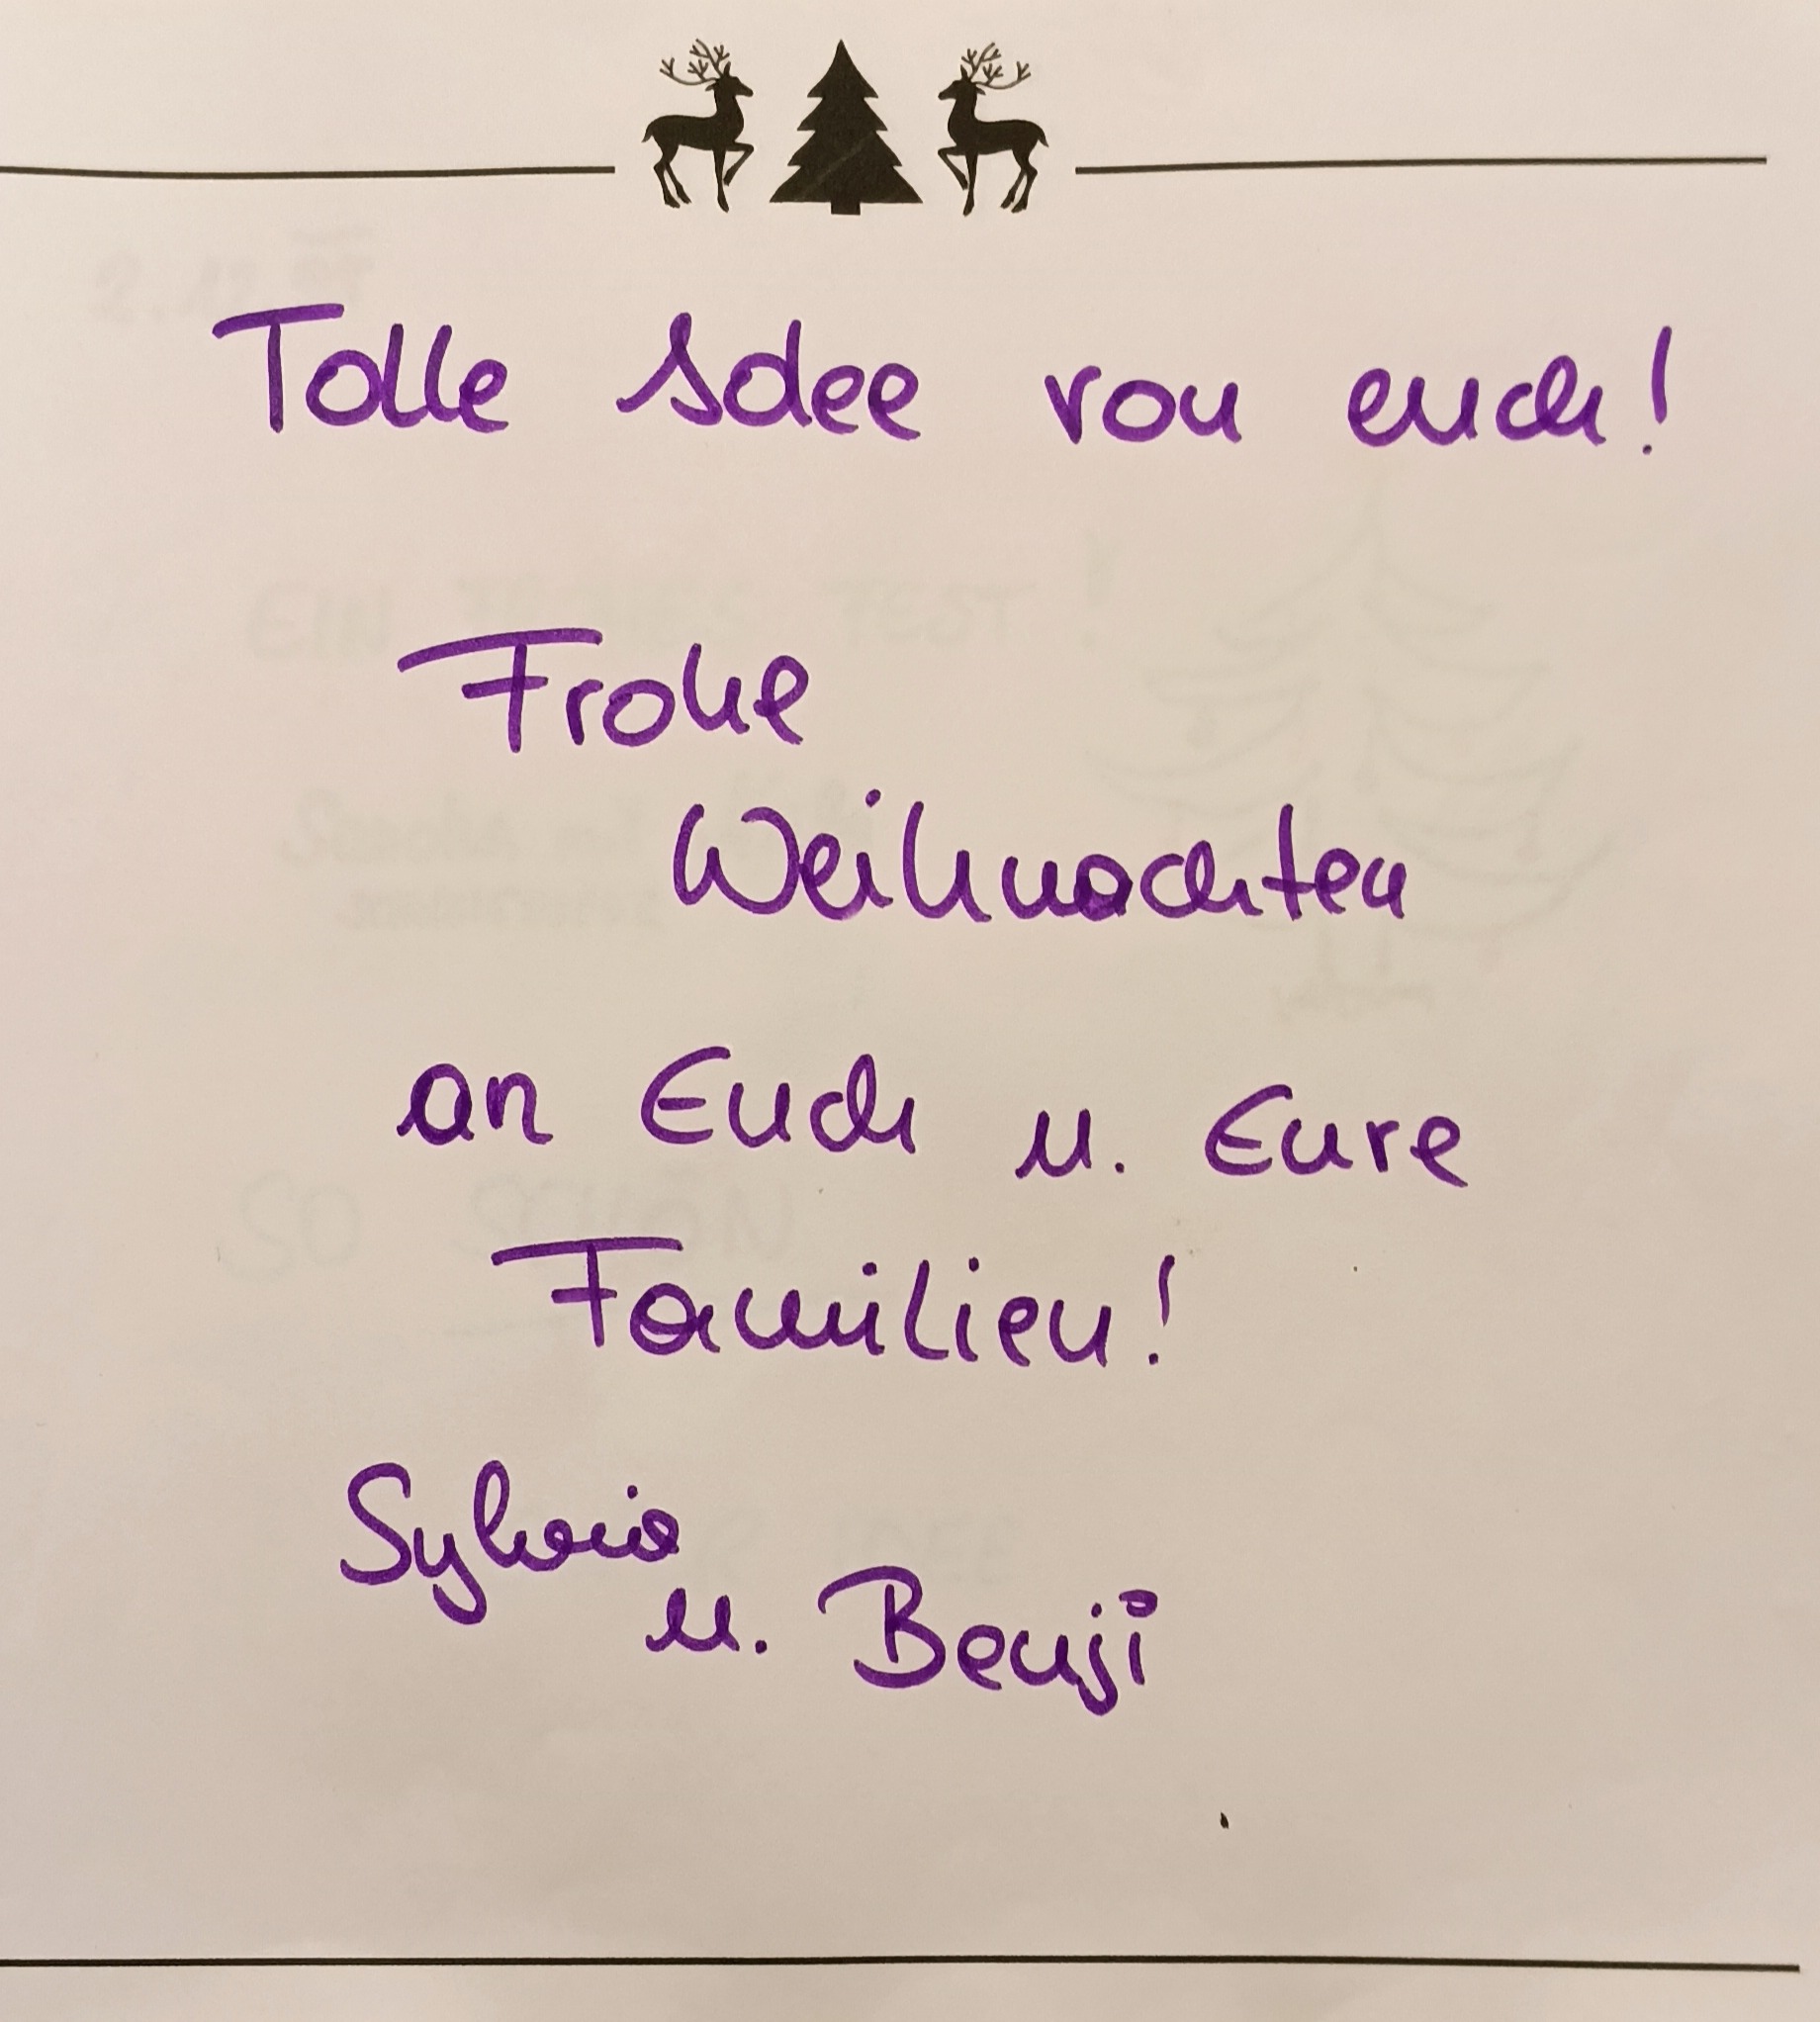 Tolle Idee von euch!
Frohe
Weihnachten
an Euch u. Eure
Familien!
Sylvia
u. Benji